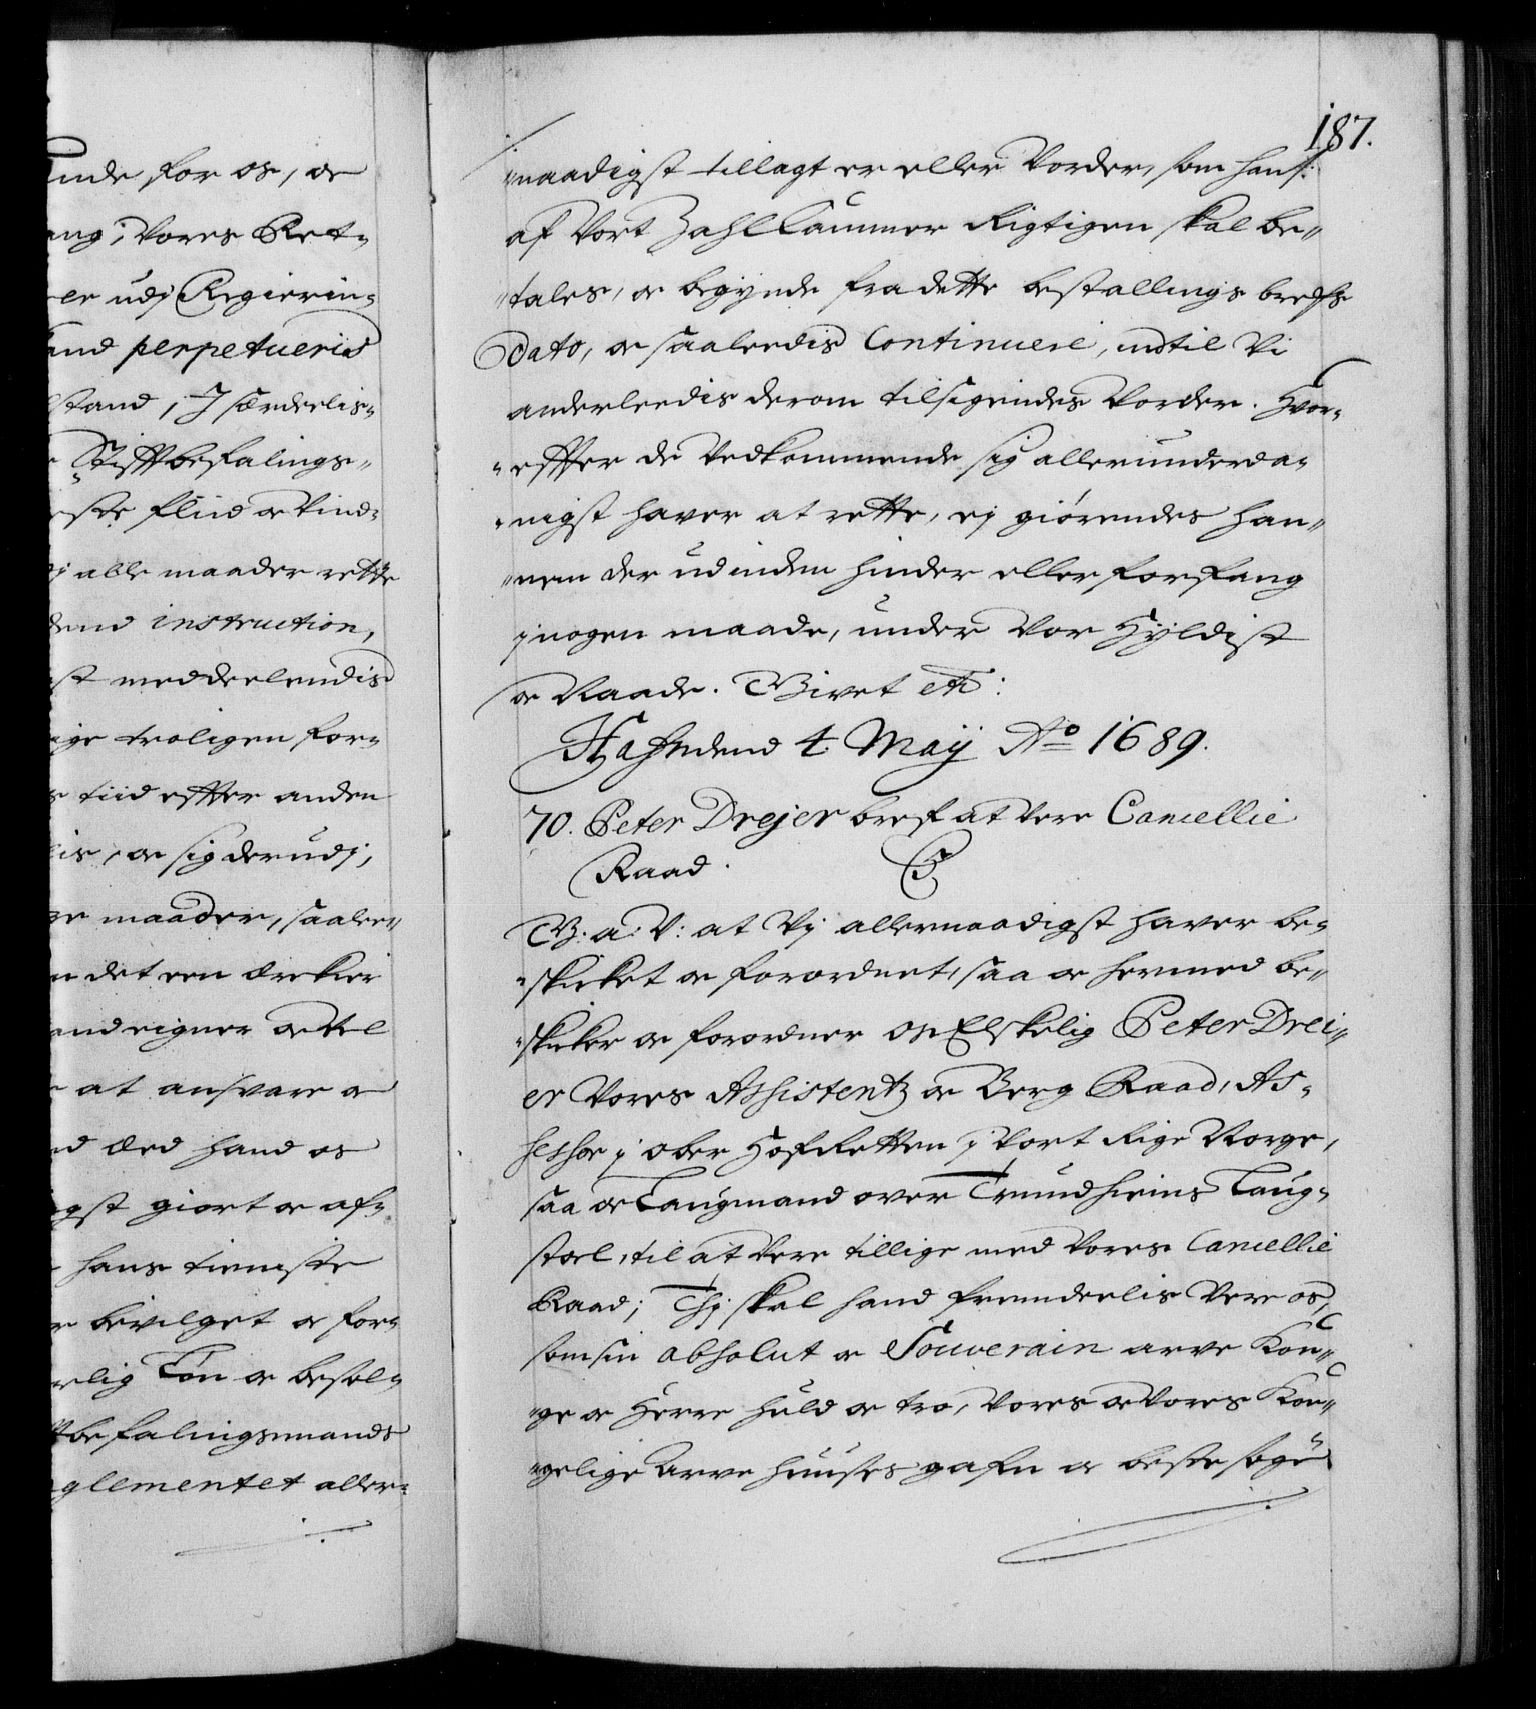 ande for os, oc
ang i Vores Ret-
er udj Regierin-
and perpetueris
stand, J særdeelis-
Stifftbefalings-
este fliid oc Vind-
j alle maader rette
dend instruction,
st meddeelendis
ige troligen for-
s tiid effter anden
lis, oc sig derudj,
re maader, saale-
m det een ærekier
and eigner oc vel
at ansvare oc
ed æed hand os
igst giort oc af-
hans tieniste
bevilget oc for-
rlig Løn oc besol-
befalingsmands
glementet aller-
187.
naadigst tillagt er eller Vorder, som hans:
af Vort Zahl Cammer Rigtigen skal be-
tales, oc begynde fra dette bestallings brefs
Dato, oc saaleedis Continuere, indtil Vi
anderleedis derom tilsigendes Vorder. Hvor-
effter de Vedkommende sig allerunderda-
nigst haver at rette, ej giørendes han-
nem der udinden hinder eller forfang
j nogen maade, under Vor Hyldist
oc Naade. Givet etc:
Hafn dend 4 Maÿ Ao 1689.
70. Peter Drejer bref at Vere Cancellie
Raad.
G. a: V: at Vj allernaadigst haver be-
skicket oc forordnet, saa oc hermed be-
skicker oc forordner os Elskelig Peter Drei-
er Vores Assistentz oc Berg Raad, As-
sessor j ober Hof Retten j Vort Rige Norge,
saa oc Laugmand over Trundhiems Laug-
stoel, til at Vere tillige med Vores Cancellie
Raad; Thj skal hand fremdeelis Vere os,
som sin absolut oc Souverain arve Kon-
ge oc Herre huld oc tro, Vores oc Vores Kon-
gelige Arve Huuses gafn oc beste søge